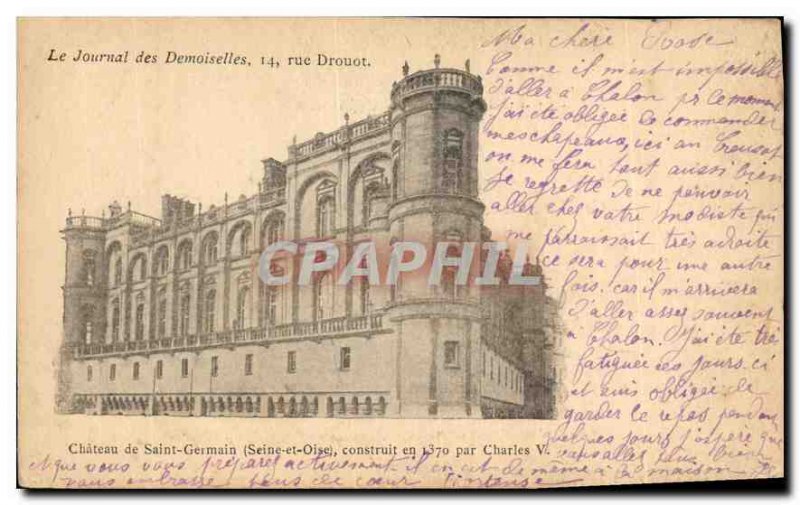 Le Journal des Demoiselles, 14, rue Drouot.
Ma chère Rose
Comme il m'est impossible
d'aller à Chalon pr le moment
j'ai été obligée de commander
mes chapeaux, ici au Creusot
on me fera tout aussi bien
Je regrette de ne pouvoir
aller chez votre modiste qui
me parraissait très adroite
ce sera pour une autre
fois. car il m'arrivera
d'aller assez souvent
à Chalon. J'ai été très
fatiguée ces jours. ci
et suis obligée de
garder le repos pendant
quelques jours j'espère que
vous allez bien
CPARPHIL
Château de Saint-Germain (Seine-et-Oise), construit en 1370 par Charles V.
et que vous vous préparez activement il en est de même à la maison Je
vous embrasse tous de cœur